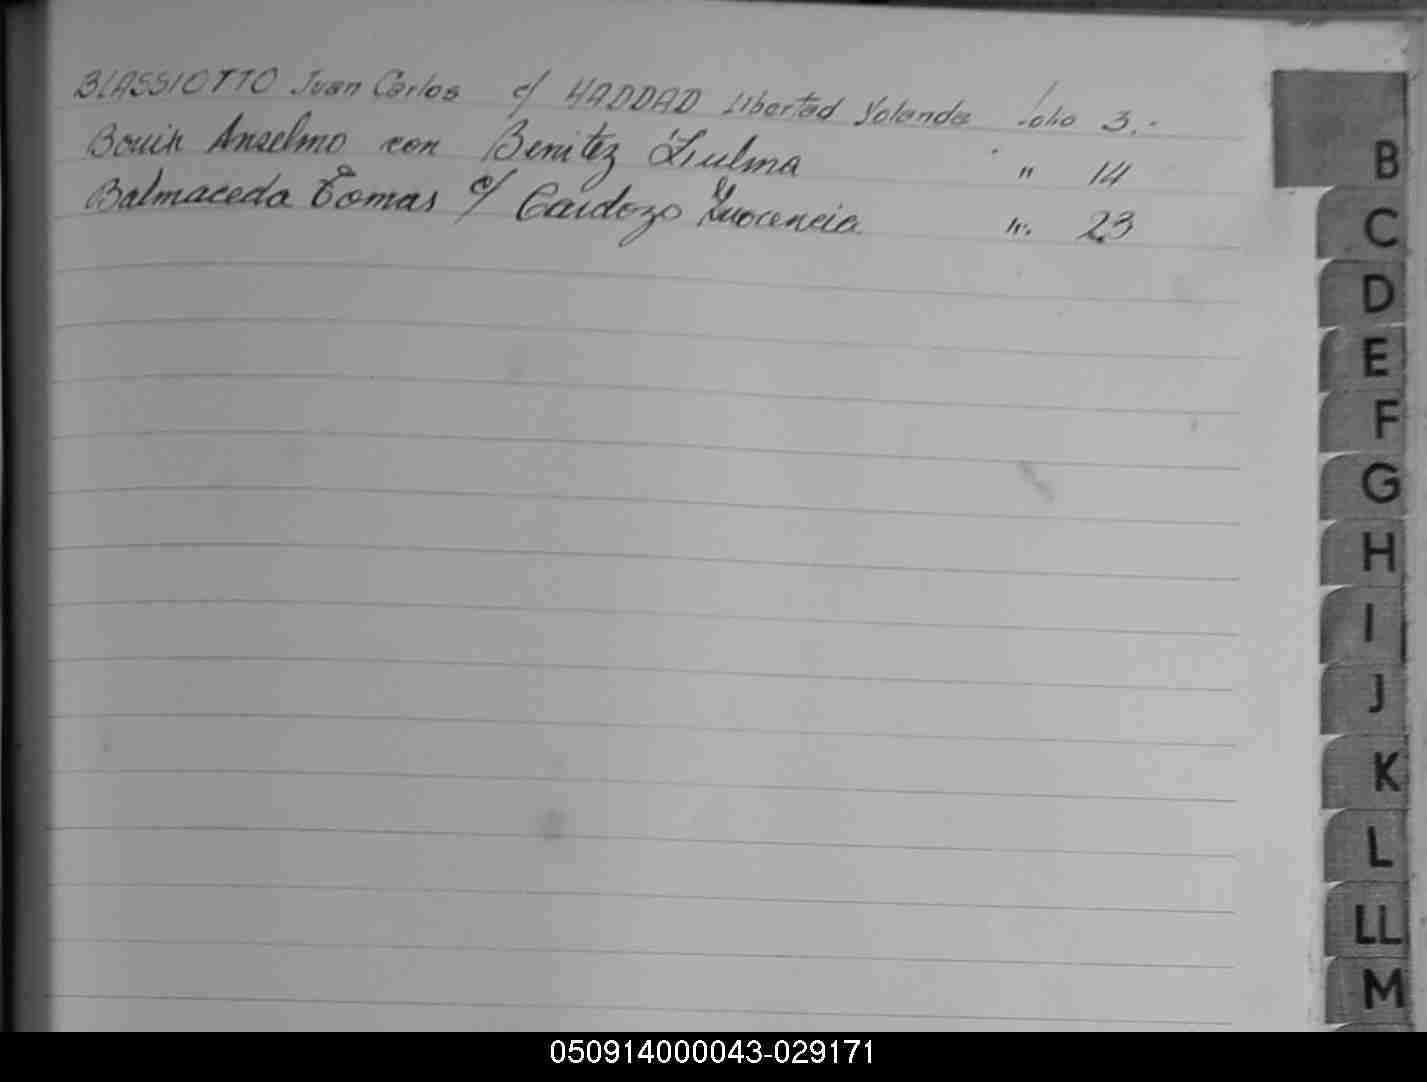 BLASSIOTTO Juan Carlos c/ HADDAD Libertad Yolanda folio 3.-
Bouix Anselmo con Benitez Zulma " 14
Balmaceda Tomas c/ Cardozo Inocencia " 23
B
C
D
E
F
G
H
I
J
K
L
LL
M
050914000043-029171